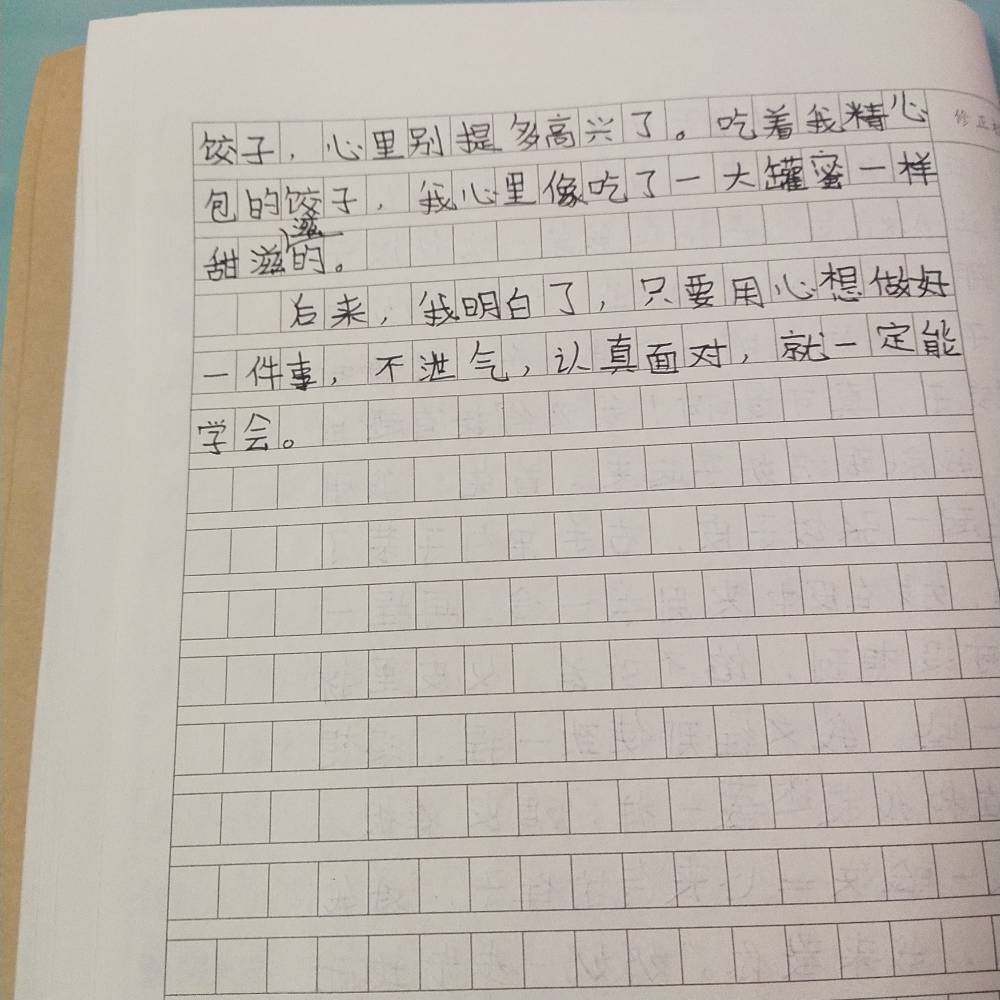 饺子，心里别提多高兴了。吃着我精心
包的饺子，我心里像吃了一大罐蜜一样
甜滋滋的。
后来，我明白了，只要用心想做好
一件事，不泄气，认真面对，就一定能
学会。
修正